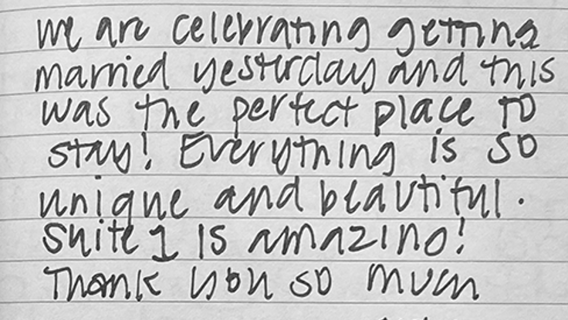 we are celebrating getting
married yesterday and this
was the perfect place to
stay! Everything is so
unique and beautiful.
Suite 1 is amazing!
Thank you so much